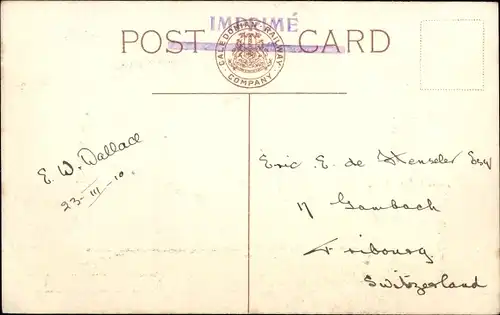 IMPRIMÉ
POST CARD
CALEDONIAN RAILWAY COMPANY
E. W. Wallace
23-III-10.
Eric E. de Henseler Esq
17 Gambach
Fribourg
Switzerland